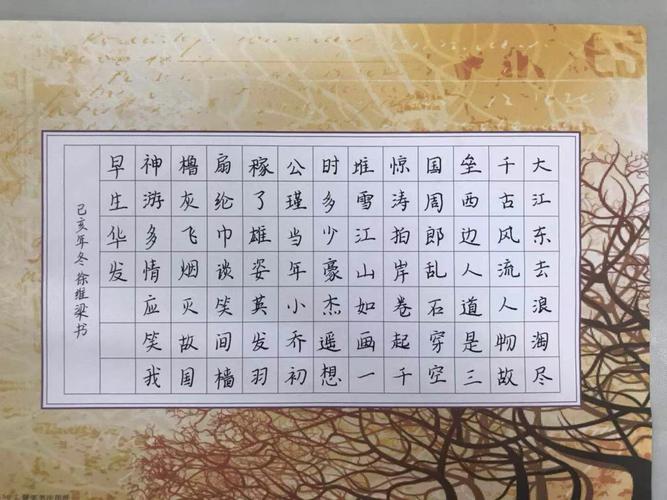 大江东去浪淘尽
千古风流人物故
垒西边人道是三
国周郎乱石穿空
惊涛拍岸卷起千
堆雪江山如画一
时多少豪杰遥想
公瑾当年小乔初
稼了雄姿英发羽
扇纶巾谈笑间樯
橹灰飞烟灭故国
神游多情应笑我
早生华发
己亥年冬 徐维梁书